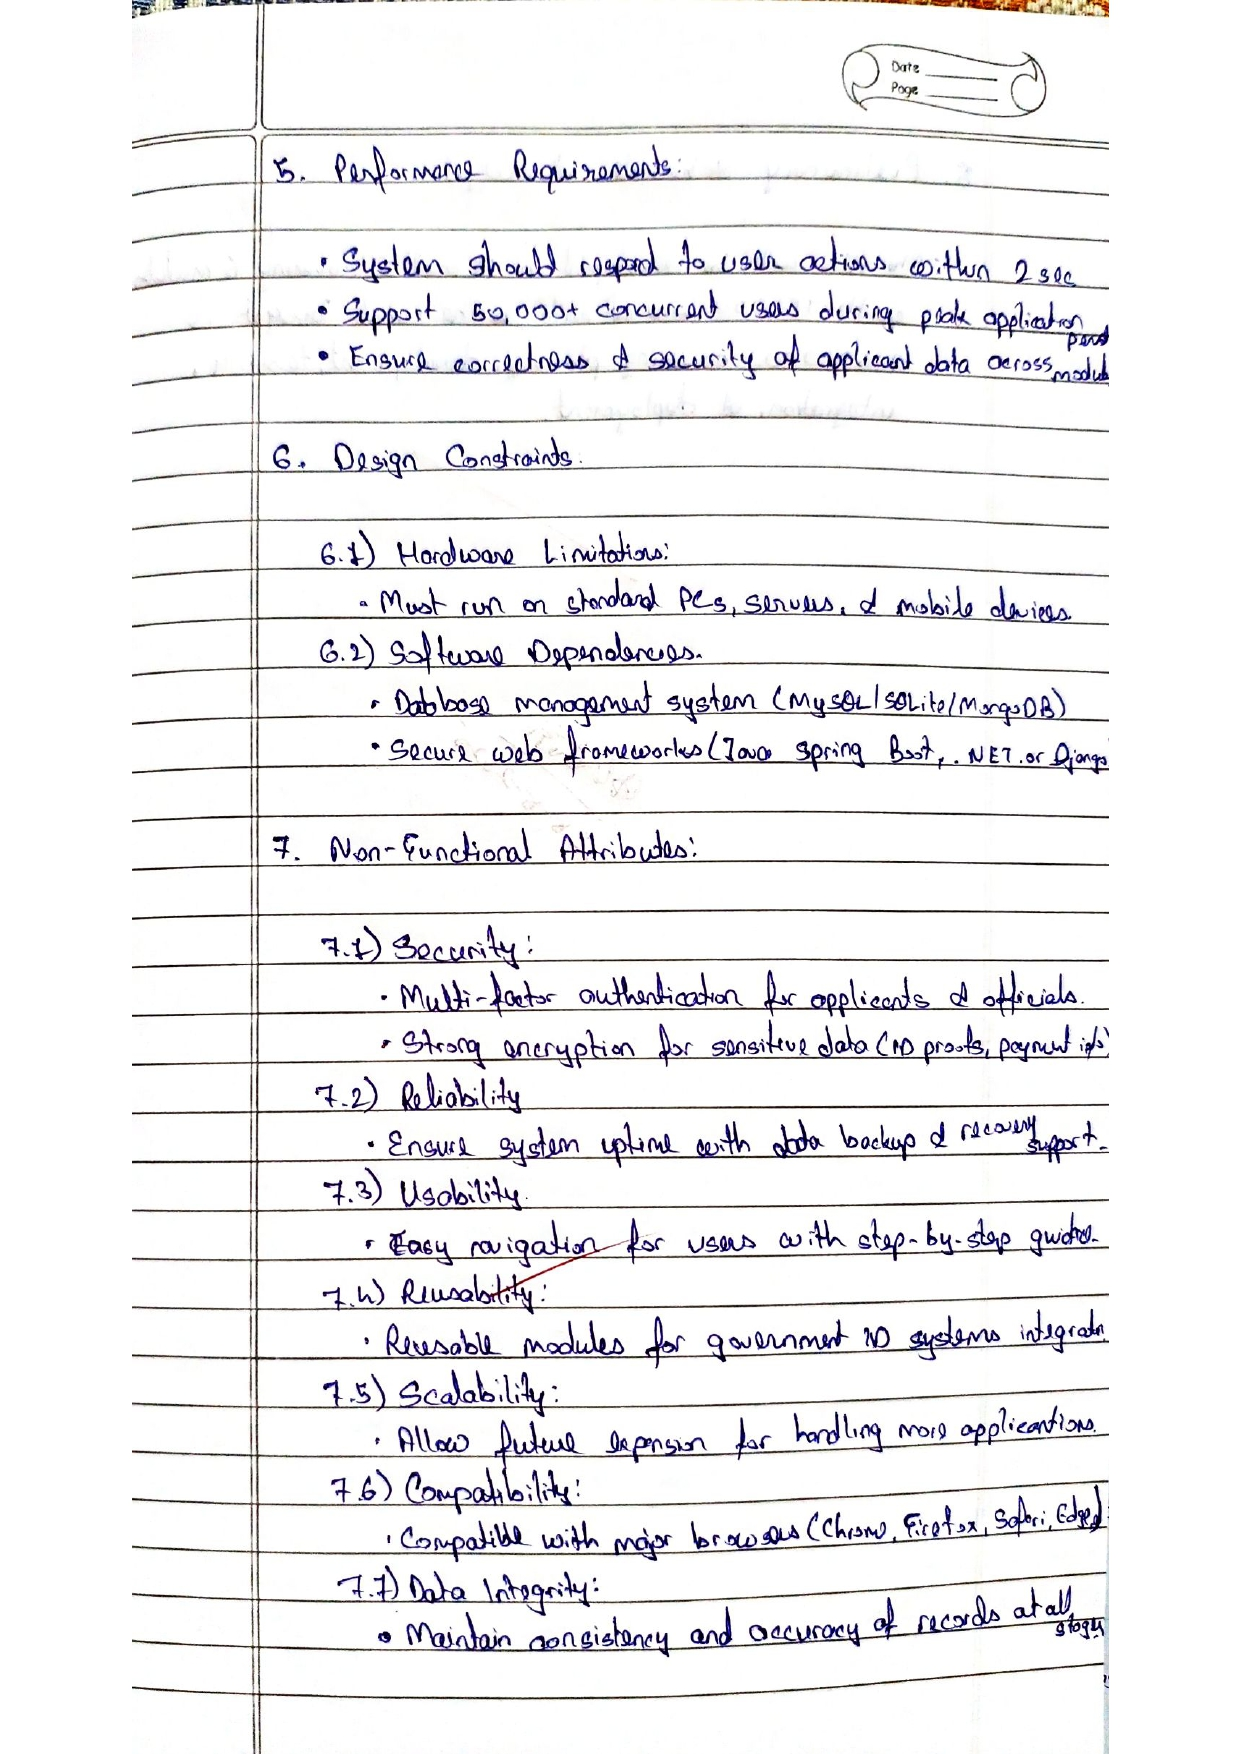 Date
Page
5. Performance Requirements:
• System should respond to user actions within 2 sec
• Support 50,000+ concurrent users during peak application
• Ensure correctness & security of applicant data across
6. Design Constraints.
6.1) Hardware Limitations:
• Must run on standard PCs, servers, & mobile devices.
6.2) Software Dependencies.
• Database management system (MySQL/SQLite/MongoDB)
• Secure web frameworks (Java Spring Boot, .NET. or Django
7. Non-Functional Attributes:
7.1) Security:
• Multi-factor authentication for applicants & officials.
• Strong encryption for sensitive data (ID proofs, payment info)
7.2) Reliability
• Ensure system uptime with data backup & recovery
support.
7.3) Usability.
• Easy navigation for users with step-by-step
7.4) Reusability:
• Reusable modules for government ID systems
7.5) Scalability:
• Allow future expansion for handling more applications.
7.6) Compatibility:
• Compatible with major browsers (Chrome, Firefox, Safari, Edge)
7.7) Data Integrity:
• Maintain consistency and accuracy of records at all
stages